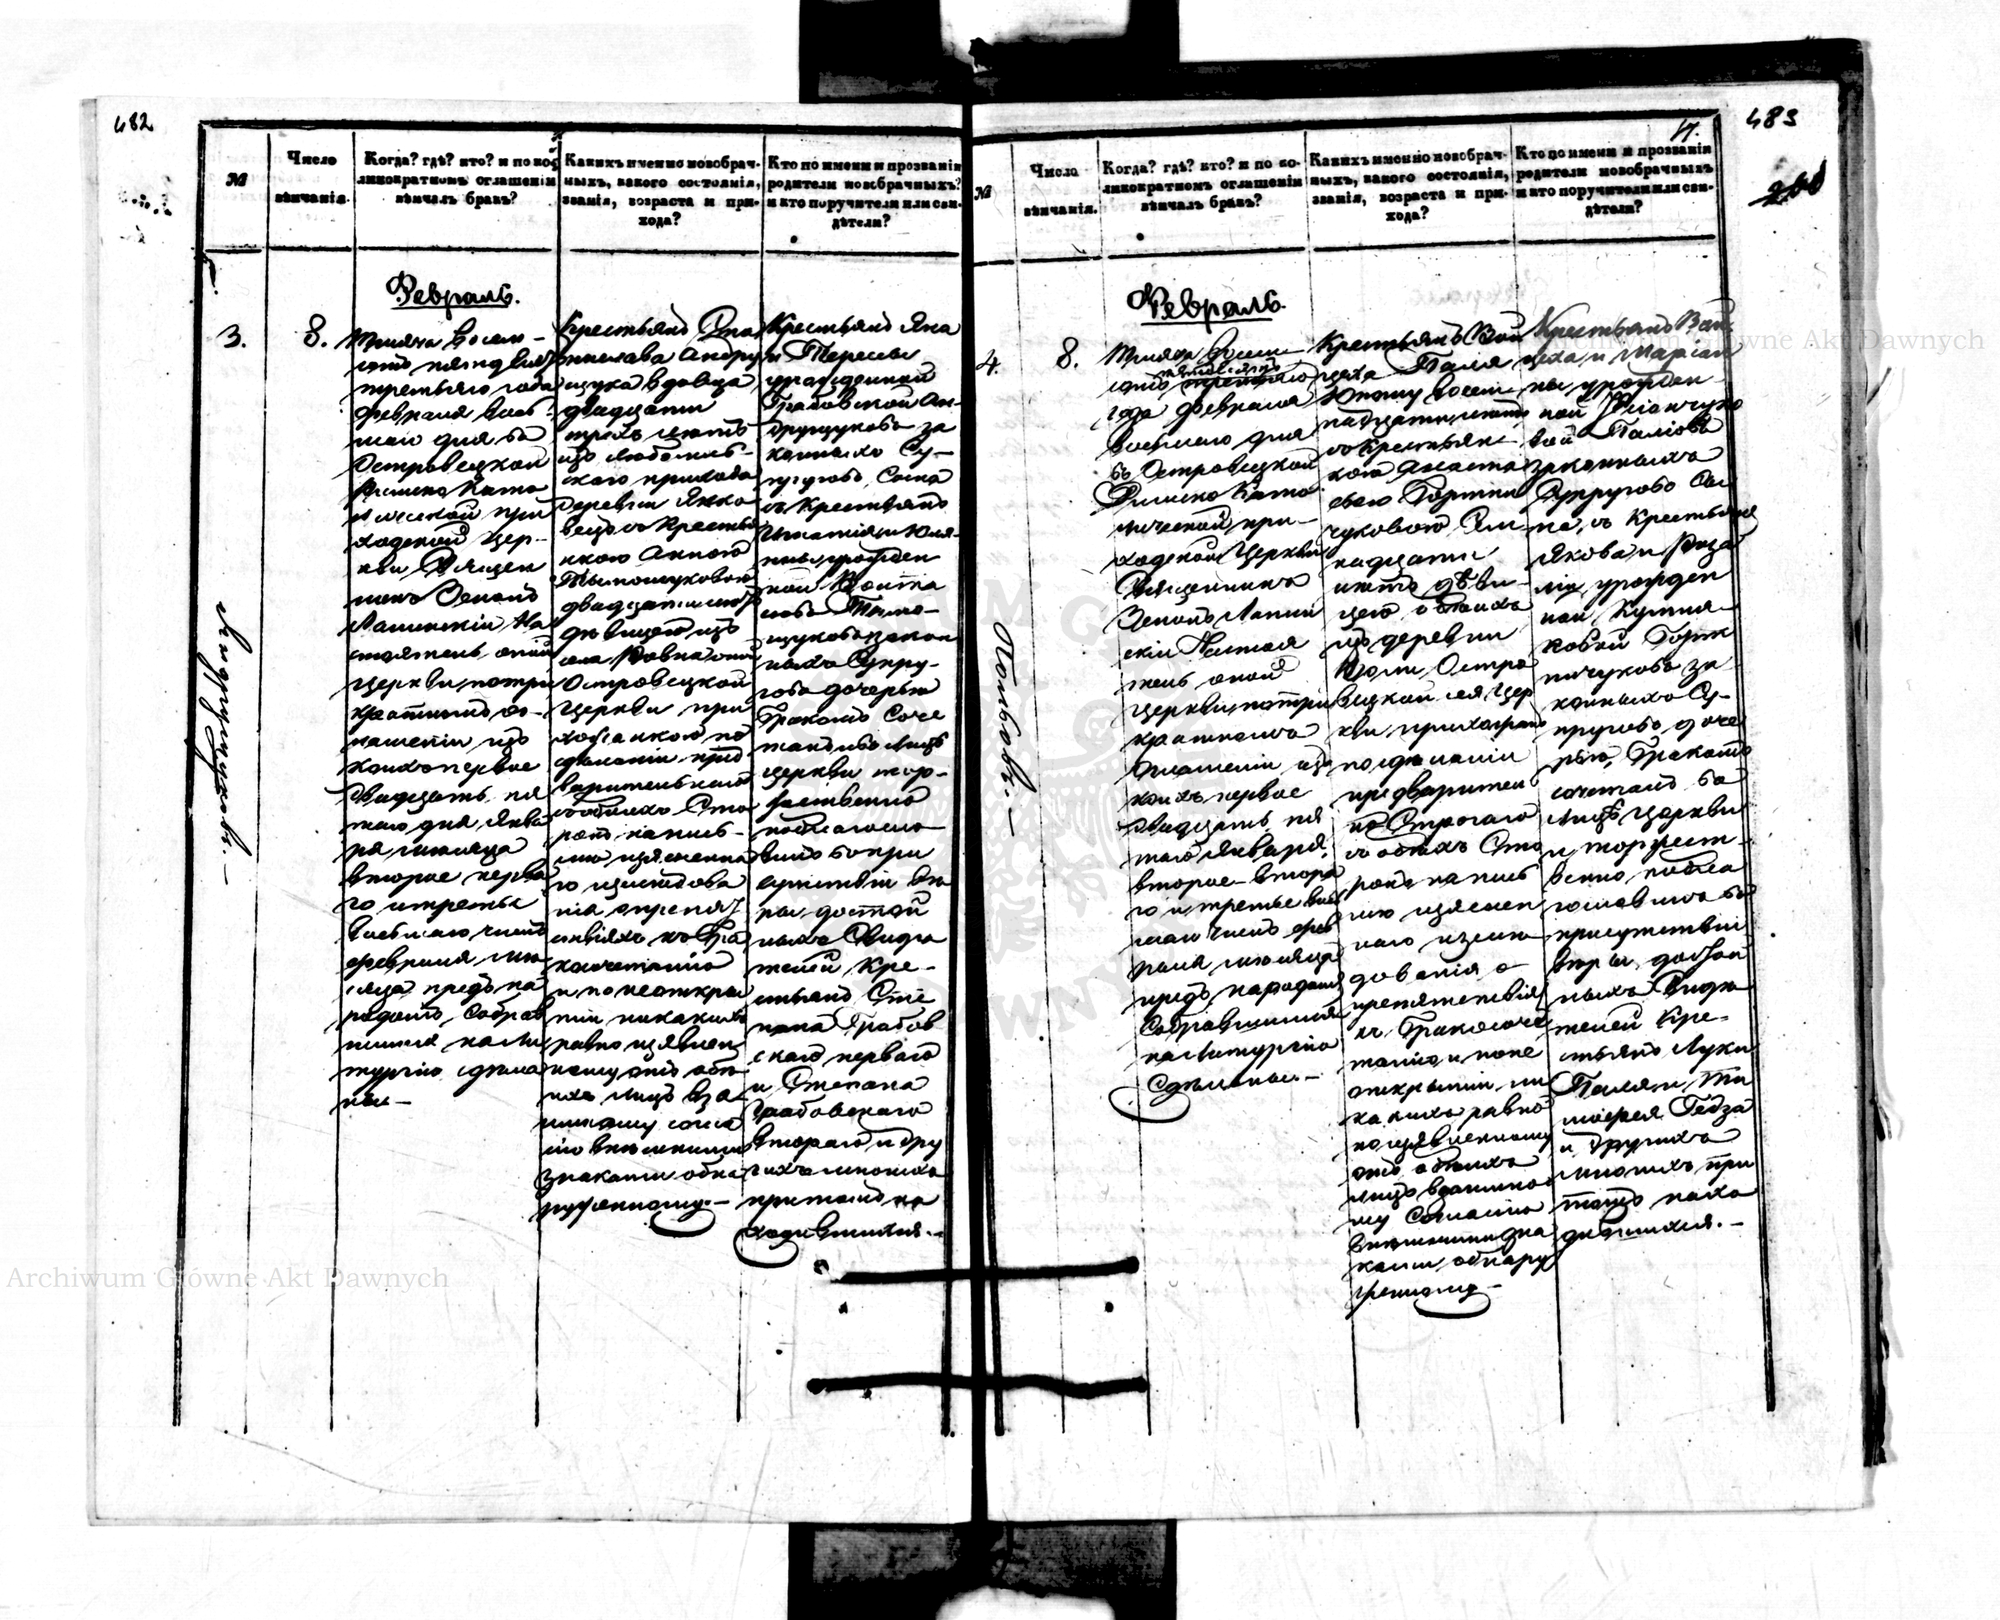 482
№
Число
вѣнчанія.
Когда? гдѣ? кто? и по ко-
ликократномъ оглашеніи
вѣнчалъ бракъ?
Какихъ именно новобрач-
ныхъ, какого состоянія,
званія, возраста и при-
хода?
Кто по имени и прозванію
родители новобрачныхъ?
и кто поручители или сви-
дѣтели?
Февраль.
3.
8.
Тысяча восем-
сотъ пятьдесятъ
третьяго года
февраля вось-
маго дня въ
Островецкой
Римско Като
лической при
ходской Цер-
кви, Священ
никъ Зенонъ
Лапинскій На
стоятель оной
Церкви, по три
кратномъ ог-
лашеніи изъ
коихъ первое
двадцать пя
таго дня Янва
ря мѣсяца
второе перва
го и третье
восьмаго числъ
февраля мѣ-
сяца предъ на
родомъ, собрав
шимся на Ли
тургію сдѣла
ны.-
Крестьянъ
нислава Андру
щука вдовца
двадцати
трехъ лѣтъ
изъ
скаго прихода
деревни Яхно
вецъ съ крестьян
кою Анною
Тымощуковою
двадцати лѣтъ
дѣвицею изъ
села Ровна оной
Островецкой
Церкви при
хожанкою по
сдѣланіи пред
варительнаго
съ обоихъ Сто
ронъ на пись-
мѣ изъясненна
го изслѣдова
нія о препят
ствіяхъ къ бра
косочетанію
и по неоткры
тіи никакихъ
равно изъявлен
ному отъ обо-
ихъ лицъ вза
имному согла
сію внѣшними
знаками обна
руженному.-
Крестьянъ Яна
и Тересы
урожденной
Грабовской Ан-
друщуковъ за
конныхъ Су-
пруговъ, Сына
съ Крестьянъ
Игнатія и Юлі-
аны урожден
ной Войтю
ковъ Тымо-
щуковъ закон
ныхъ Супру-
говъ дочерью
бракомъ соче
талъ и въ лицѣ
Церкви тор-
жественно
поблагосло-
вилъ въ при
сутствіи вѣ
ры достой
ныхъ Свидѣ
телей Кре-
стьянъ Сте
пана Грабов
скаго перваго
и Степана
Грабовскаго
втораго и дру
гихъ многихъ
при томъ на
ходившихся.-
Андрущуковъ.-
483
17.
№
Число
вѣнчанія.
Когда? гдѣ? кто? и по ко-
ликократномъ оглашеніи
вѣнчалъ бракъ?
Какихъ именно новобрач-
ныхъ, какого состоянія,
званія, возраста и при-
хода?
Кто по имени и прозванію
родители новобрачныхъ
и кто поручители или сви-
дѣтели?
Февраль.
4.
8.
Тысяча восем-
сотъ пятьдесятъ третьяго
года февраля
восьмаго дня
въ Островецкой
Римско Като
лической при-
ходской Церкви
Священникъ
Зенонъ Лапин
скій Настоя
тель оной
Церкви, по три
кратномъ
оглашеніи изъ
коихъ первое
двадцать пя
таго Января,
второе перва
го и третье вось
маго числъ фев
раля мѣсяца
предъ народомъ
Собравшимся
на Литургію
Сдѣланы.-
Крестьянъ Вой
цеха Паля
Юношу восем
надцати лѣтъ
съ Крестьян-
кою Анаста
сіею Горпин
чуковою
надцати
лѣтъ дѣви-
цею обоихъ
изъ деревни
Юли Остро
вецкой сея Цер
кви прихожанъ
по сдѣланіи
предваритель
но Строгаго
съ обоихъ Сто
ронъ на пись
мѣ изъяснен
наго изслѣ
дованія о
препятствіяхъ
къ бракосоче
танію, и по не
открытіи ни
какихъ равно
по изъявленному
отъ обоихъ
лицъ взаимно
му Согласію
внѣшними зна
ками обнару
женному.-
Крестьянъ Вой
цеха и Маріан
ны урожден-
ной
вой Палювъ
законныхъ
Супруговъ Сы
на, съ Крестьянъ
Якова и Роза
ліи урожден
ной
ковой Горпи
нчуковъ за-
конныхъ Су-
пруговъ, доче
рью, бракомъ
сочеталъ въ
лицѣ Церкви
и торжест-
венно побла
гословилъ въ
присутствіи
вѣры достой
ныхъ Свидѣ
телей Кре-
стьянъ Луки
Паля и Ти
мофея Гедза
и другихъ
многихъ при
томъ нахо
дившихся.-
Пальовъ.-
Archiwum Główne Akt Dawnych
Archiwum Główne Akt Dawnych